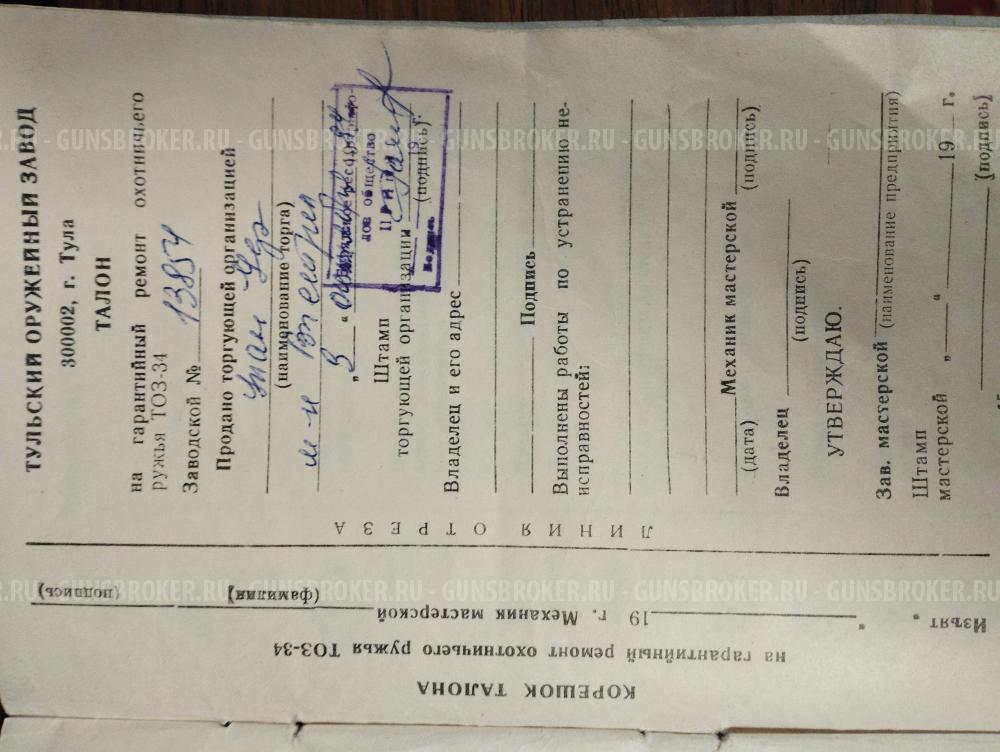 ТУЛЬСКИЙ ОРУЖЕЙНЫЙ ЗАВОД
300002, г. Тула
ТАЛОН
на гарантийный ремонт охотничьего
ружья ТОЗ-34
Заводской № 13854
Продано торгующей организацией
Улан Удэ
(наименование торга)
м-н
„3“
Штамп
торгующей организации
(подпись)
дов общество
Владелец и его адрес
Подпись
Выполнены работы по устранению не-
исправностей:
Механик мастерской
(дата) (подпись)
Владелец
(подпись)
УТВЕРЖДАЮ.
Зав. мастерской
(наименование предприятия)
Штамп
мастерской „ “ 19 г.
(подпись)
ЛИНИЯ ОТРЕЗА
КОРЕШОК ТАЛОНА
на гарантийный ремонт охотничьего ружья ТОЗ-34
Изъят „ “ 19 г. Механик мастерской
(фамилия) (подпись)
GUNSBROKER.RU - GUNSBROKER.RU - GUNSBROKER.RU - GUNSBROKER.RU
GUNSBROKER.RU - GUNSBROKER.RU - GUNSBROKER.RU - GUNSBROKER.RU